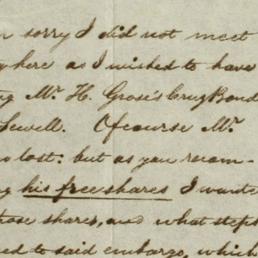 sorry I did not meet
here as I wished to have
Mr. H. Grose's Crug Bond
Sewell. Ofcourse Mr.
lost: but as you recom-
his free shares I wante
those shares, and what steps
to said embargo, which